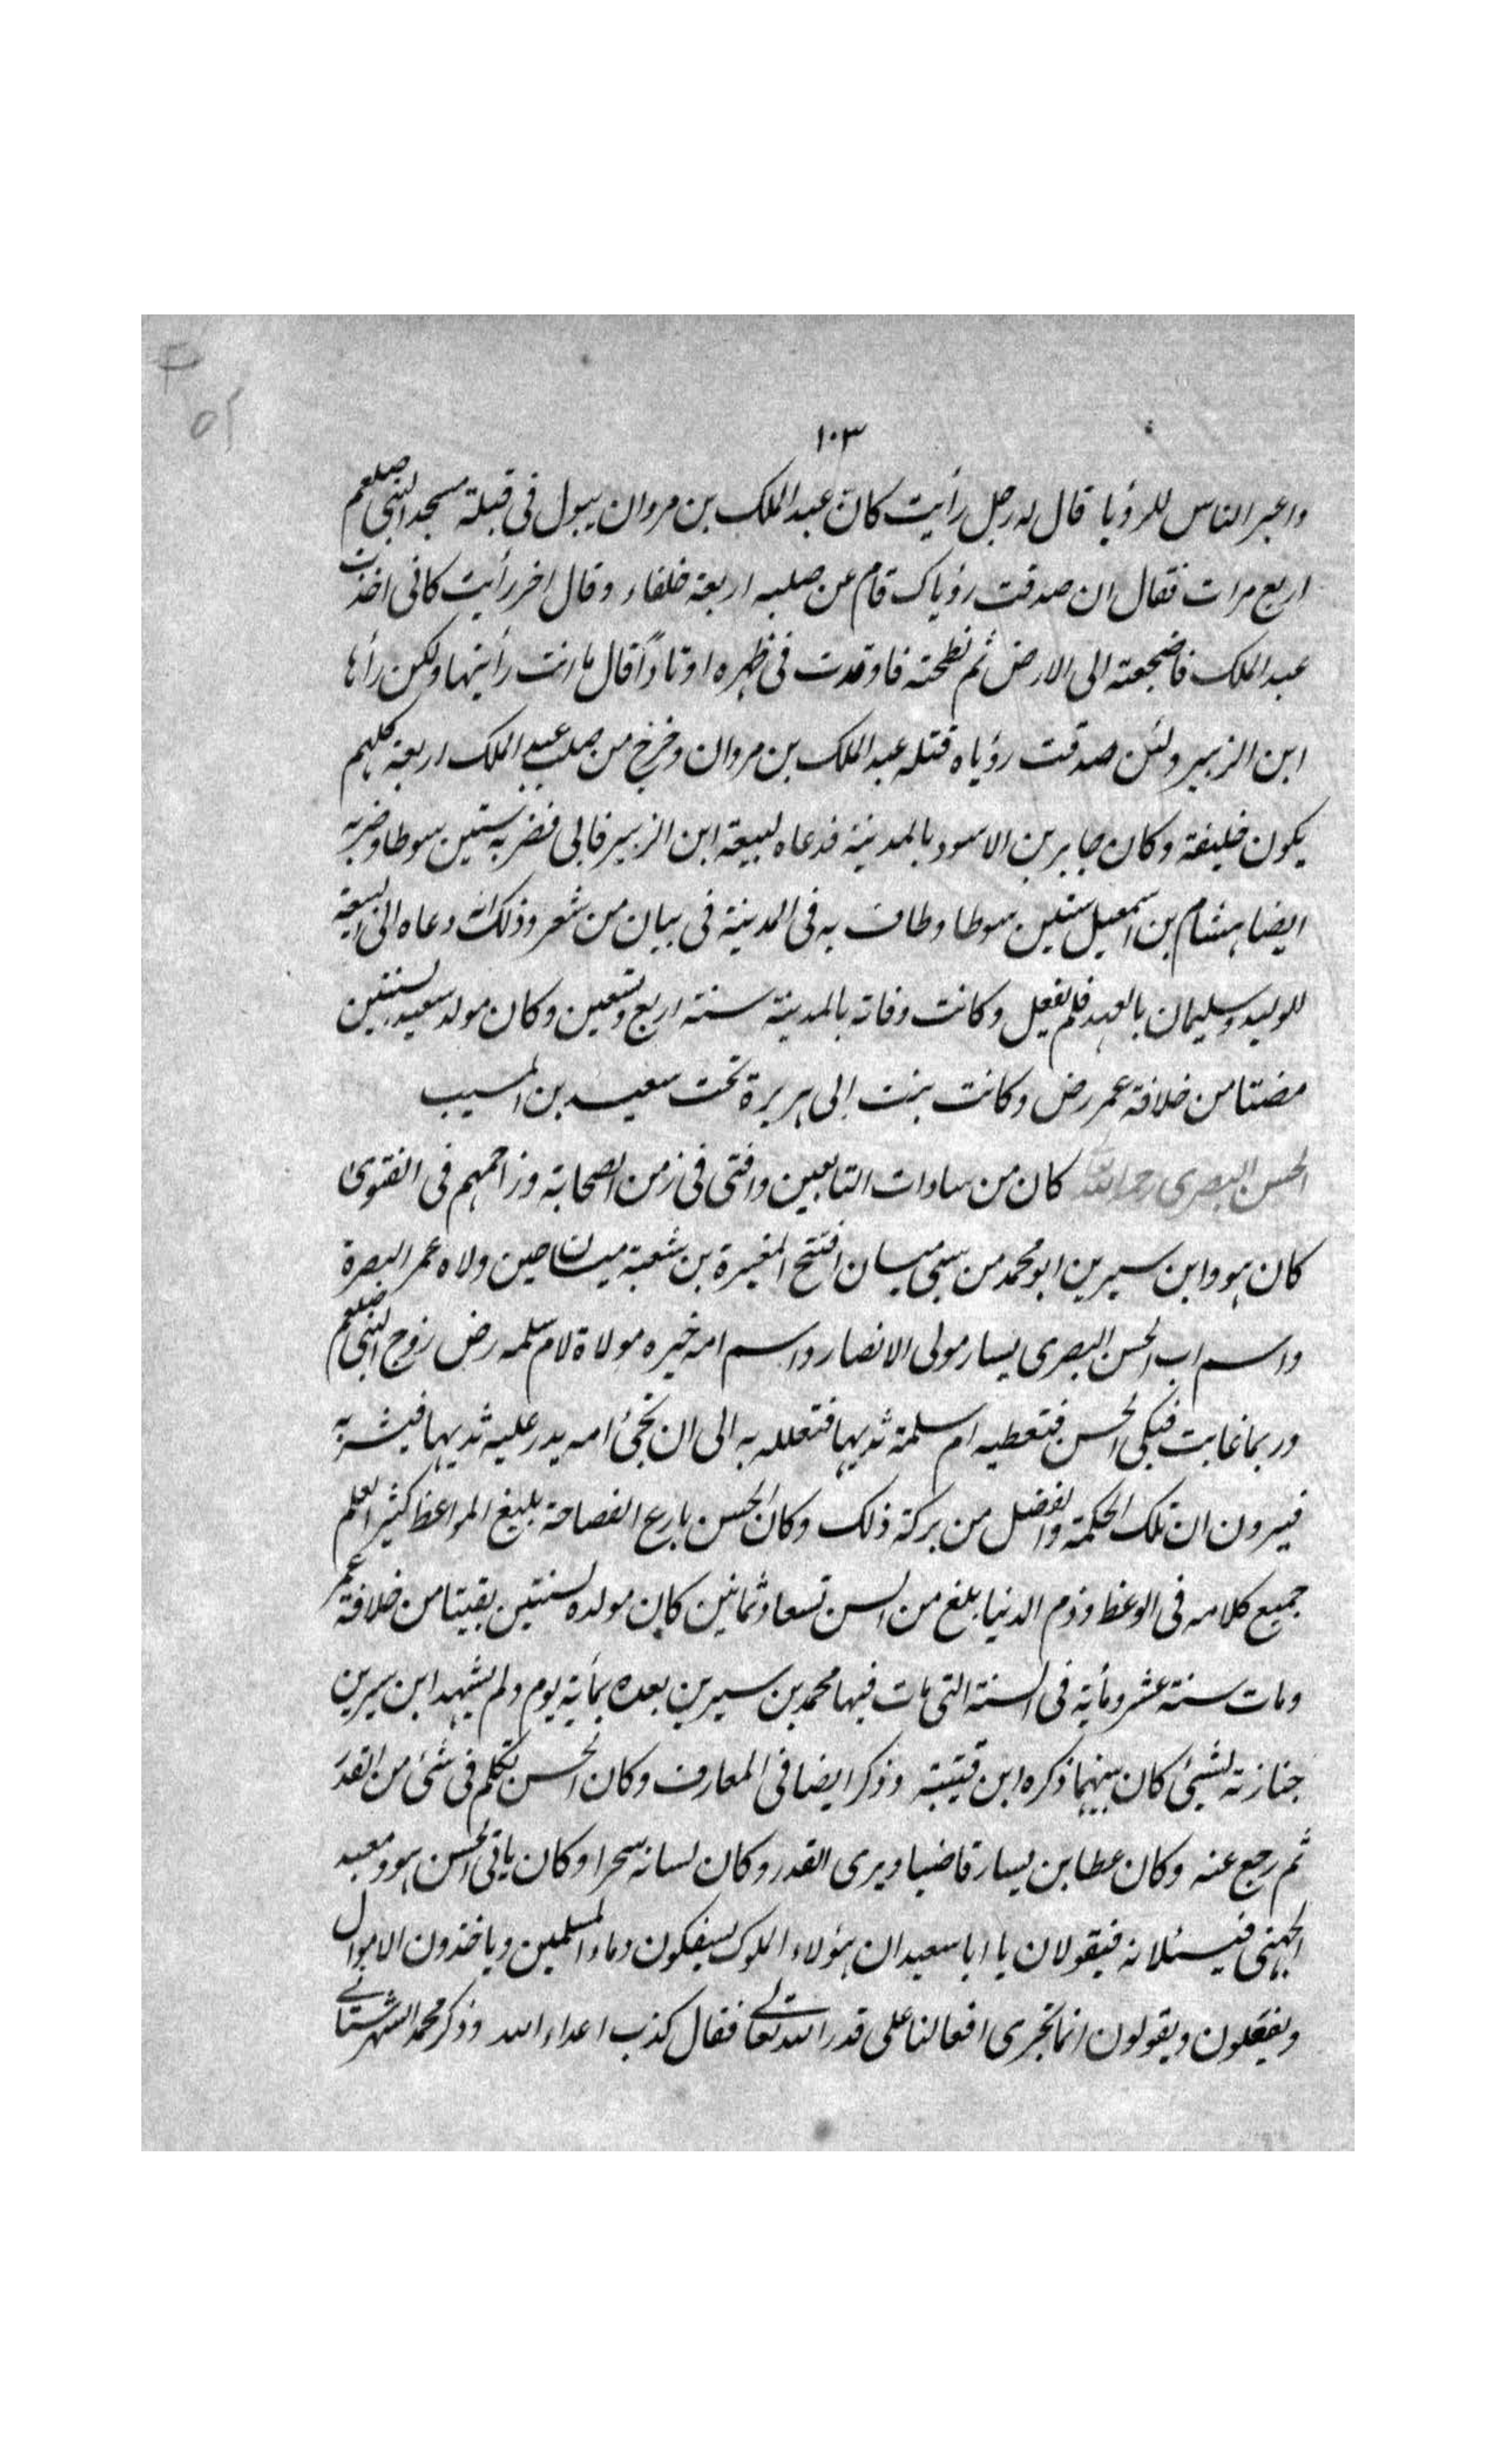 ١٠٣
واعبر الناس للرؤيا قال له رجل رأيت كان عبد الملك بن مروان يبول فى قبلة مسجد النبى صلعم
اربع مرات فقال ان صدقت رؤياك قام من صلبه اربعة خلفاء وقال اخر رأيت كانى اخذت
عبد الملك فاضجعته الى الارض ثم نطحته فاوتدت فى ظهره اوتادًا قال ما انت رأيتها ولكن رأها
ابن الزبير ولئن صدقت رؤياه قتله عبد الملك بن مروان وخرج من صلب عبد الملك اربعة كلهم
يكون خليفة وكان جابر بن الاسود بالمدينة فدعاه لبيعة ابن الزبير فابى فضربه ستين سوطا وضربه
ايضا هشام بن اسمعيل ستين سوطا وطاف به فى المدينة فى تبان من شعر وذلك انه دعاه الى البيعة
للوليد وسليمان بالعهد فلم يفعل وكانت وفاته بالمدينة سنة اربع وتسعين وكان مولد سعيد لسنتين
مضتا من خلافة عمر رض وكانت بنت ابى هريرة تحت سعيد بن المسيب
الحسن البصرى رحمه الله كان من سادات التابعين وافتى فى زمن الصحابة وزاحمهم فى الفتوى
كان هو وابن سيرين ابو محمد من سبى ميسان افتتح المغيرة بن شعبة ميسان حين ولاه عمر البصرة
واسم اب الحسن البصرى يسار مولى الانصار واسم امه خيره مولاة لام سلمه رض زوج النبى صلعم
وربما غابت فبكى الحسن فتعطيه ام سلمة ثديها فتعلله به الى ان تجئ امه يدر عليه ثديها فيشربه
فيرون ان تلك الحكمة والفضل من بركة ذلك وكان الحسن بارع الفصاحة بليغ المواعظ كثير العلم
جميع كلامه فى الوعظ وذم الدنيا بلغ من السن تسعا وثمانين كان مولده لسنتين بقيتا من خلافة عمر
ومات سنة عشر ومأية فى السنة التى مات فيها محمد بن سيرين بعده بمأية يوم ولم يشهد ابن سيرين
جنازته لشئ كان بينهما ذكره ابن قتيبة وذكر ايضا فى المعارف وكان الحسن تكلم فى شئ من القدر
ثم رجع عنه وكان عطا بن يسار قاضيا ويرى القدر وكان لسانه سحرا وكان ياتى الحسن هو ومعبد
الجهنى فيسئلانه فيقولان يا ابا سعيد ان هؤلاء الملوك يسفكون دماء المسلمين وياخذون الاموال
ويفعلون ويقولون انما تجرى افعالنا على قدر الله تعالى فقال كذب اعداء الله وذكر محمد الشهرستانى